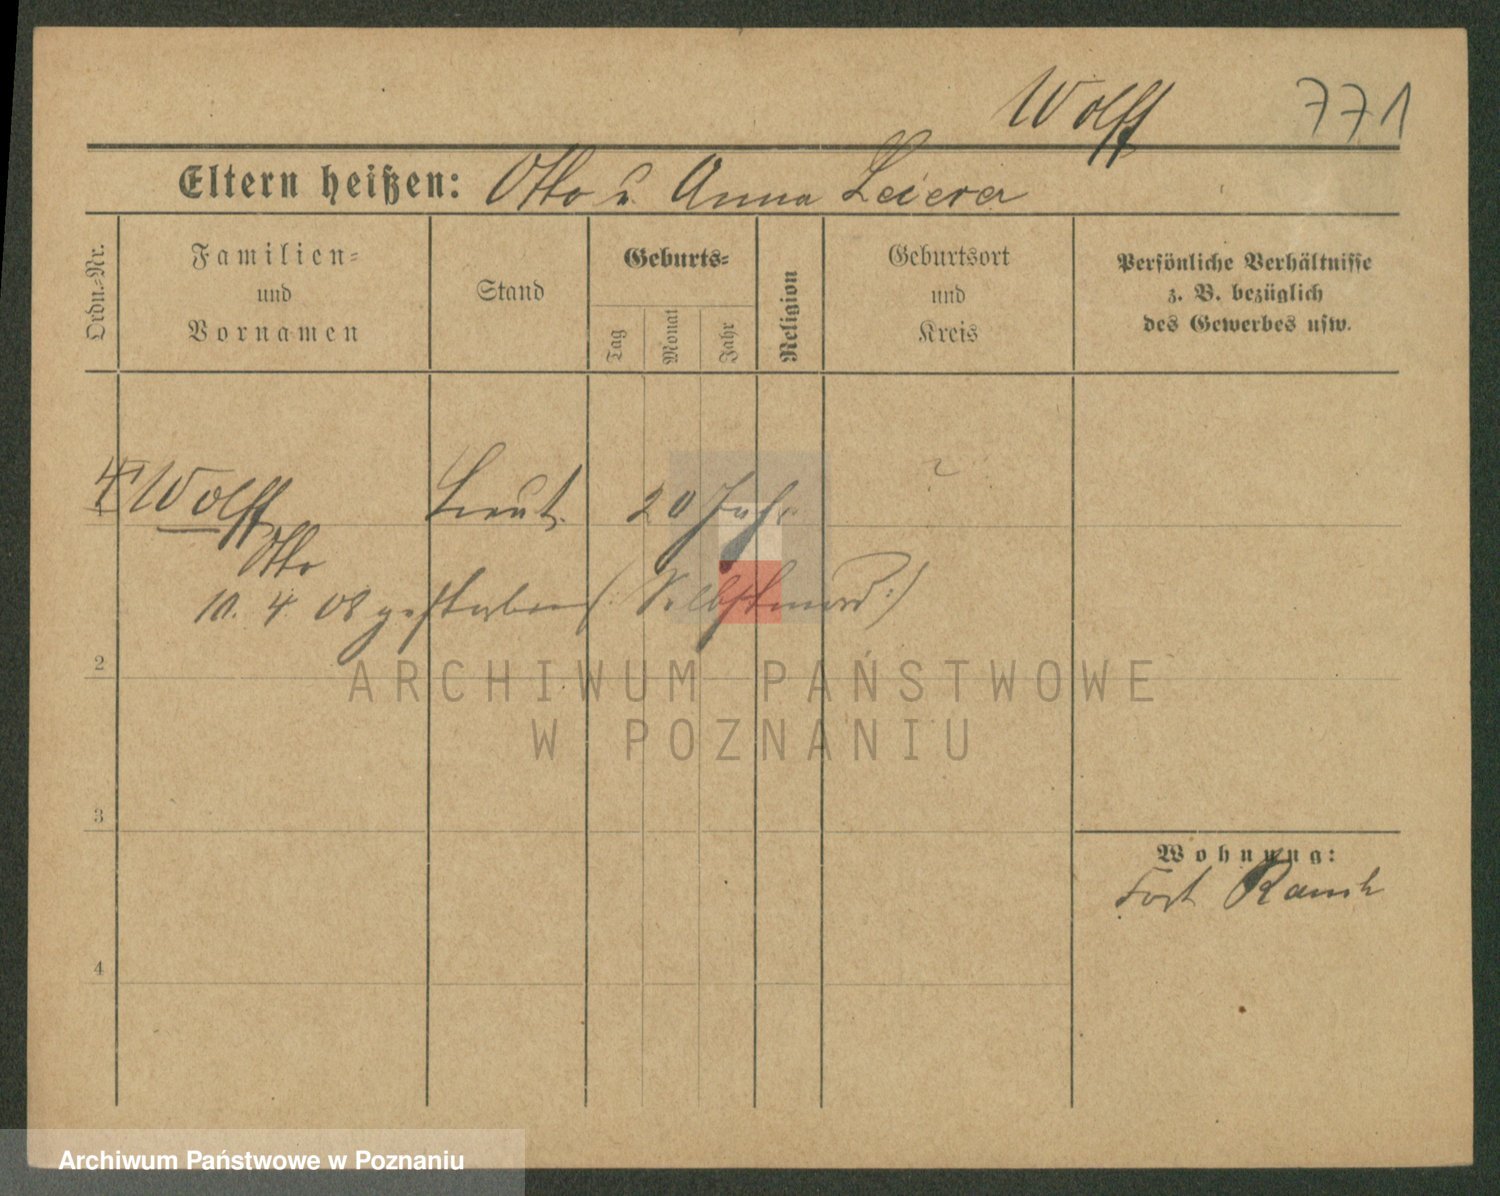 Wolff 771
Eltern heißen: Otto u. Anna Leierer
Ordn.-Nr.
Familien-
und
Vornamen
Stand
Geburts-
Tag
Monat
Jahr
Religion
Geburtsort
und
Kreis
Persönliche Verhältnisse
z. B. bezüglich
des Gewerbes usw.
Wolff Lieut. 20 Jahr ?
Otto
10. 4. 08 gestorben (: Selbstmord :)
2
3
4
Wohnung:
Fort Rauch
ARCHIWUM PAŃSTWOWE
W POZNANIU
Archiwum Państwowe w Poznaniu